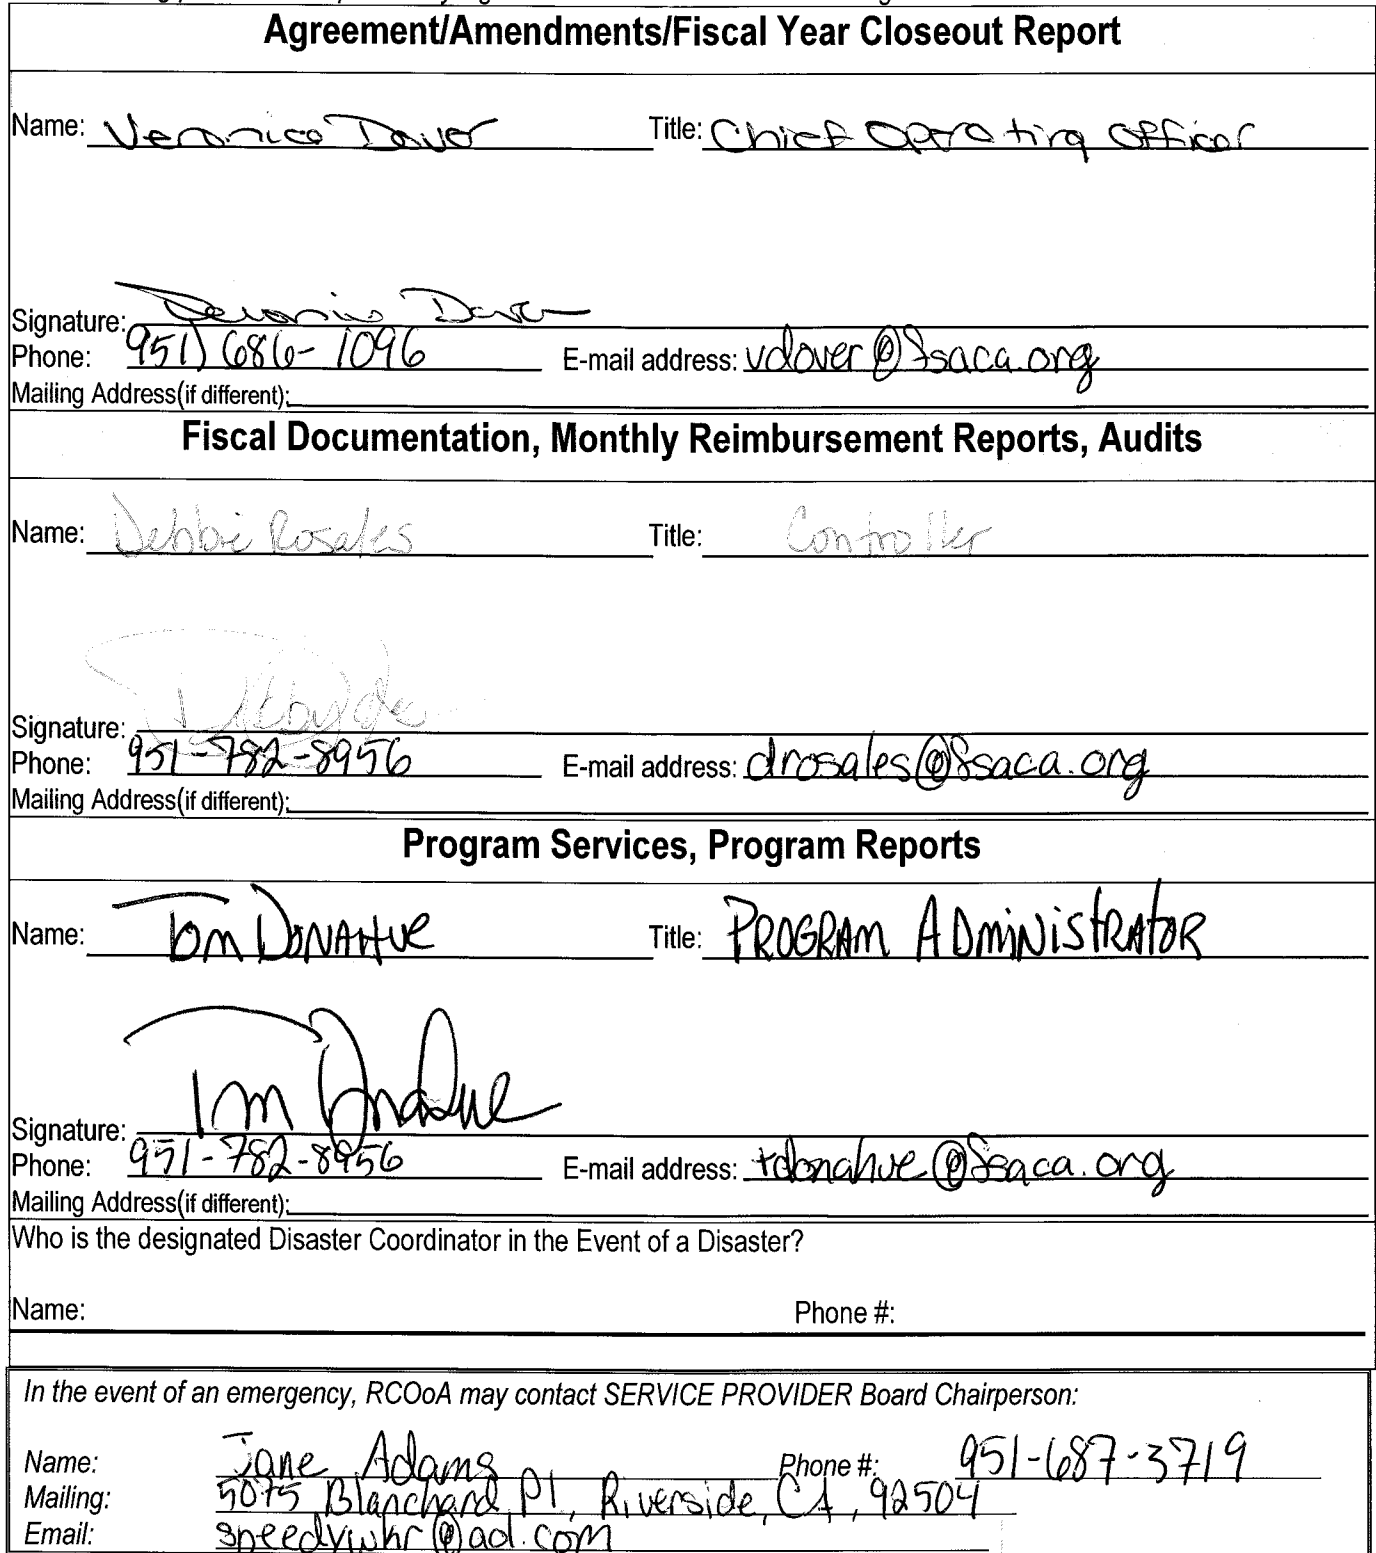 Agreement/Amendments/Fiscal Year Closeout Report
Name: Veronica Dover Title: Chief Operating Officer
Signature: Veronica Dover
Phone: 951) 686-1096 E-mail address: vdover@fsaca.org
Mailing Address(if different):
Fiscal Documentation, Monthly Reimbursement Reports, Audits
Name: Debbie Rosales Title: Controller
Signature:
Phone: 951-782-8956 E-mail address: drosales@fsaca.org
Mailing Address(if different):
Program Services, Program Reports
Name: Tom Donahue Title: PROGRAM ADMINISTRATOR
Signature: Tom Donahue
Phone: 951-782-8956 E-mail address: tdonahue@fsaca.org
Mailing Address(if different):
Who is the designated Disaster Coordinator in the Event of a Disaster?
Name: Phone #:
In the event of an emergency, RCOoA may contact SERVICE PROVIDER Board Chairperson:
Name: Jane Adams Phone #: 951-687-3719
Mailing: 5075 Blanchard Pl, Riverside, CA, 92504
Email: